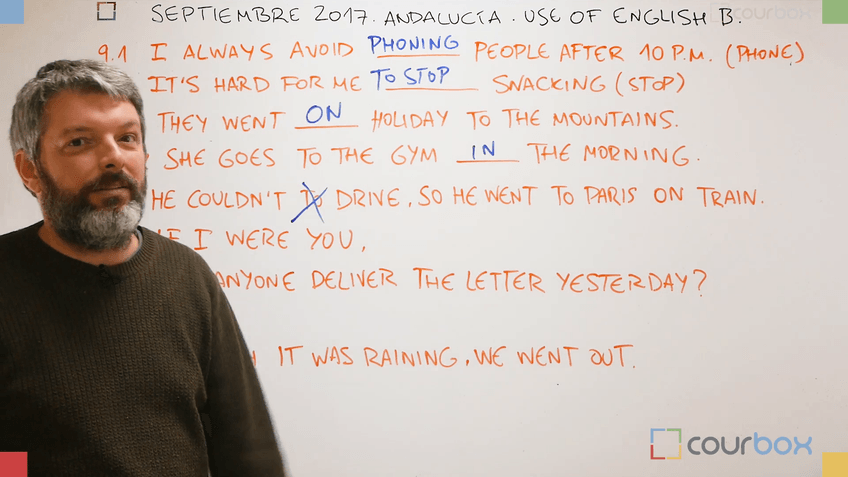 SEPTIEMBRE 2017. ANDALUCÍA. USE OF ENGLISH B.
9.1 I ALWAYS AVOID PHONING PEOPLE AFTER 10 P.M. (PHONE)
IT'S HARD FOR ME TO STOP SNACKING (STOP)
THEY WENT ON HOLIDAY TO THE MOUNTAINS.
SHE GOES TO THE GYM IN THE MORNING.
HE COULDN'T TO DRIVE, SO HE WENT TO PARIS ON TRAIN.
IF I WERE YOU,
ANYONE DELIVER THE LETTER YESTERDAY?
IT WAS RAINING, WE WENT OUT.
courbox
courbox